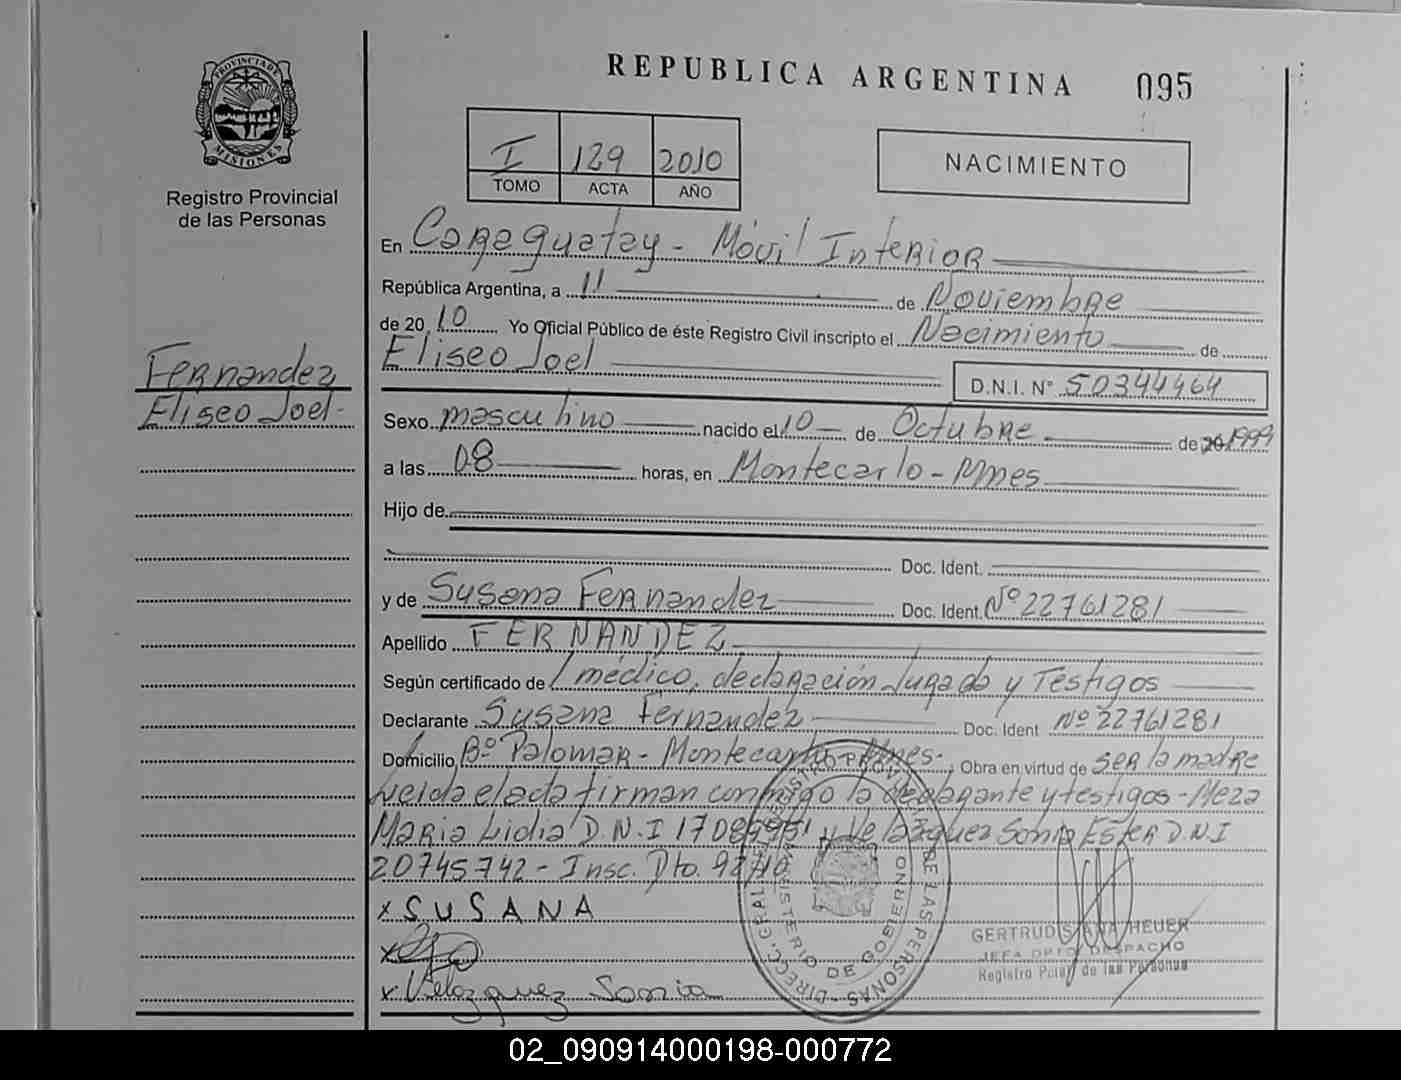 REPUBLICA ARGENTINA 095
PROVINCIA DE
MISIONES
Registro Provincial
de las Personas
I 129 2010
TOMO ACTA AÑO
NACIMIENTO
En Caraguatay - Móvil Interior
República Argentina, a 11 de Noviembre
de 2010 Yo Oficial Público de éste Registro Civil inscripto el Nacimiento de
Eliseo Joel
D.N.I. N° 50344464
Fernandez
Eliseo Joel-
Sexo masculino nacido el 10 de Octubre de 20 1999
a las 08 horas, en Montecarlo - Mnes
Hijo de
Doc. Ident.
y de Susana Fernandez Doc. Ident. Nº 22761281
Apellido FERNANDEZ
Según certificado de médico, declaración Jurada y Testigos
Declarante Susana Fernandez Doc. Ident Nº 22761281
Domicilio Bº Palomar - Montecarlo - Mnes. Obra en virtud de ser la madre
Leida el acta firman conmigo la declarante y testigos - Meza
Maria Lidia D.N.I 17085951 y Velazquez Sonia Ester D.N.I
20745742 - Insc. Dto. 92/10
x SUSANA
x
x Velazquez Sonia
DIRECC. GRAL. REGISTRO PROVINCIAL DE LAS PERSONAS
MINISTERIO DE GOBIERNO
GERTRUDIS ANA HEUER
JEFA DPTO. DESPACHO
Registro Pcial. de las Personas
02_090914000198-000772